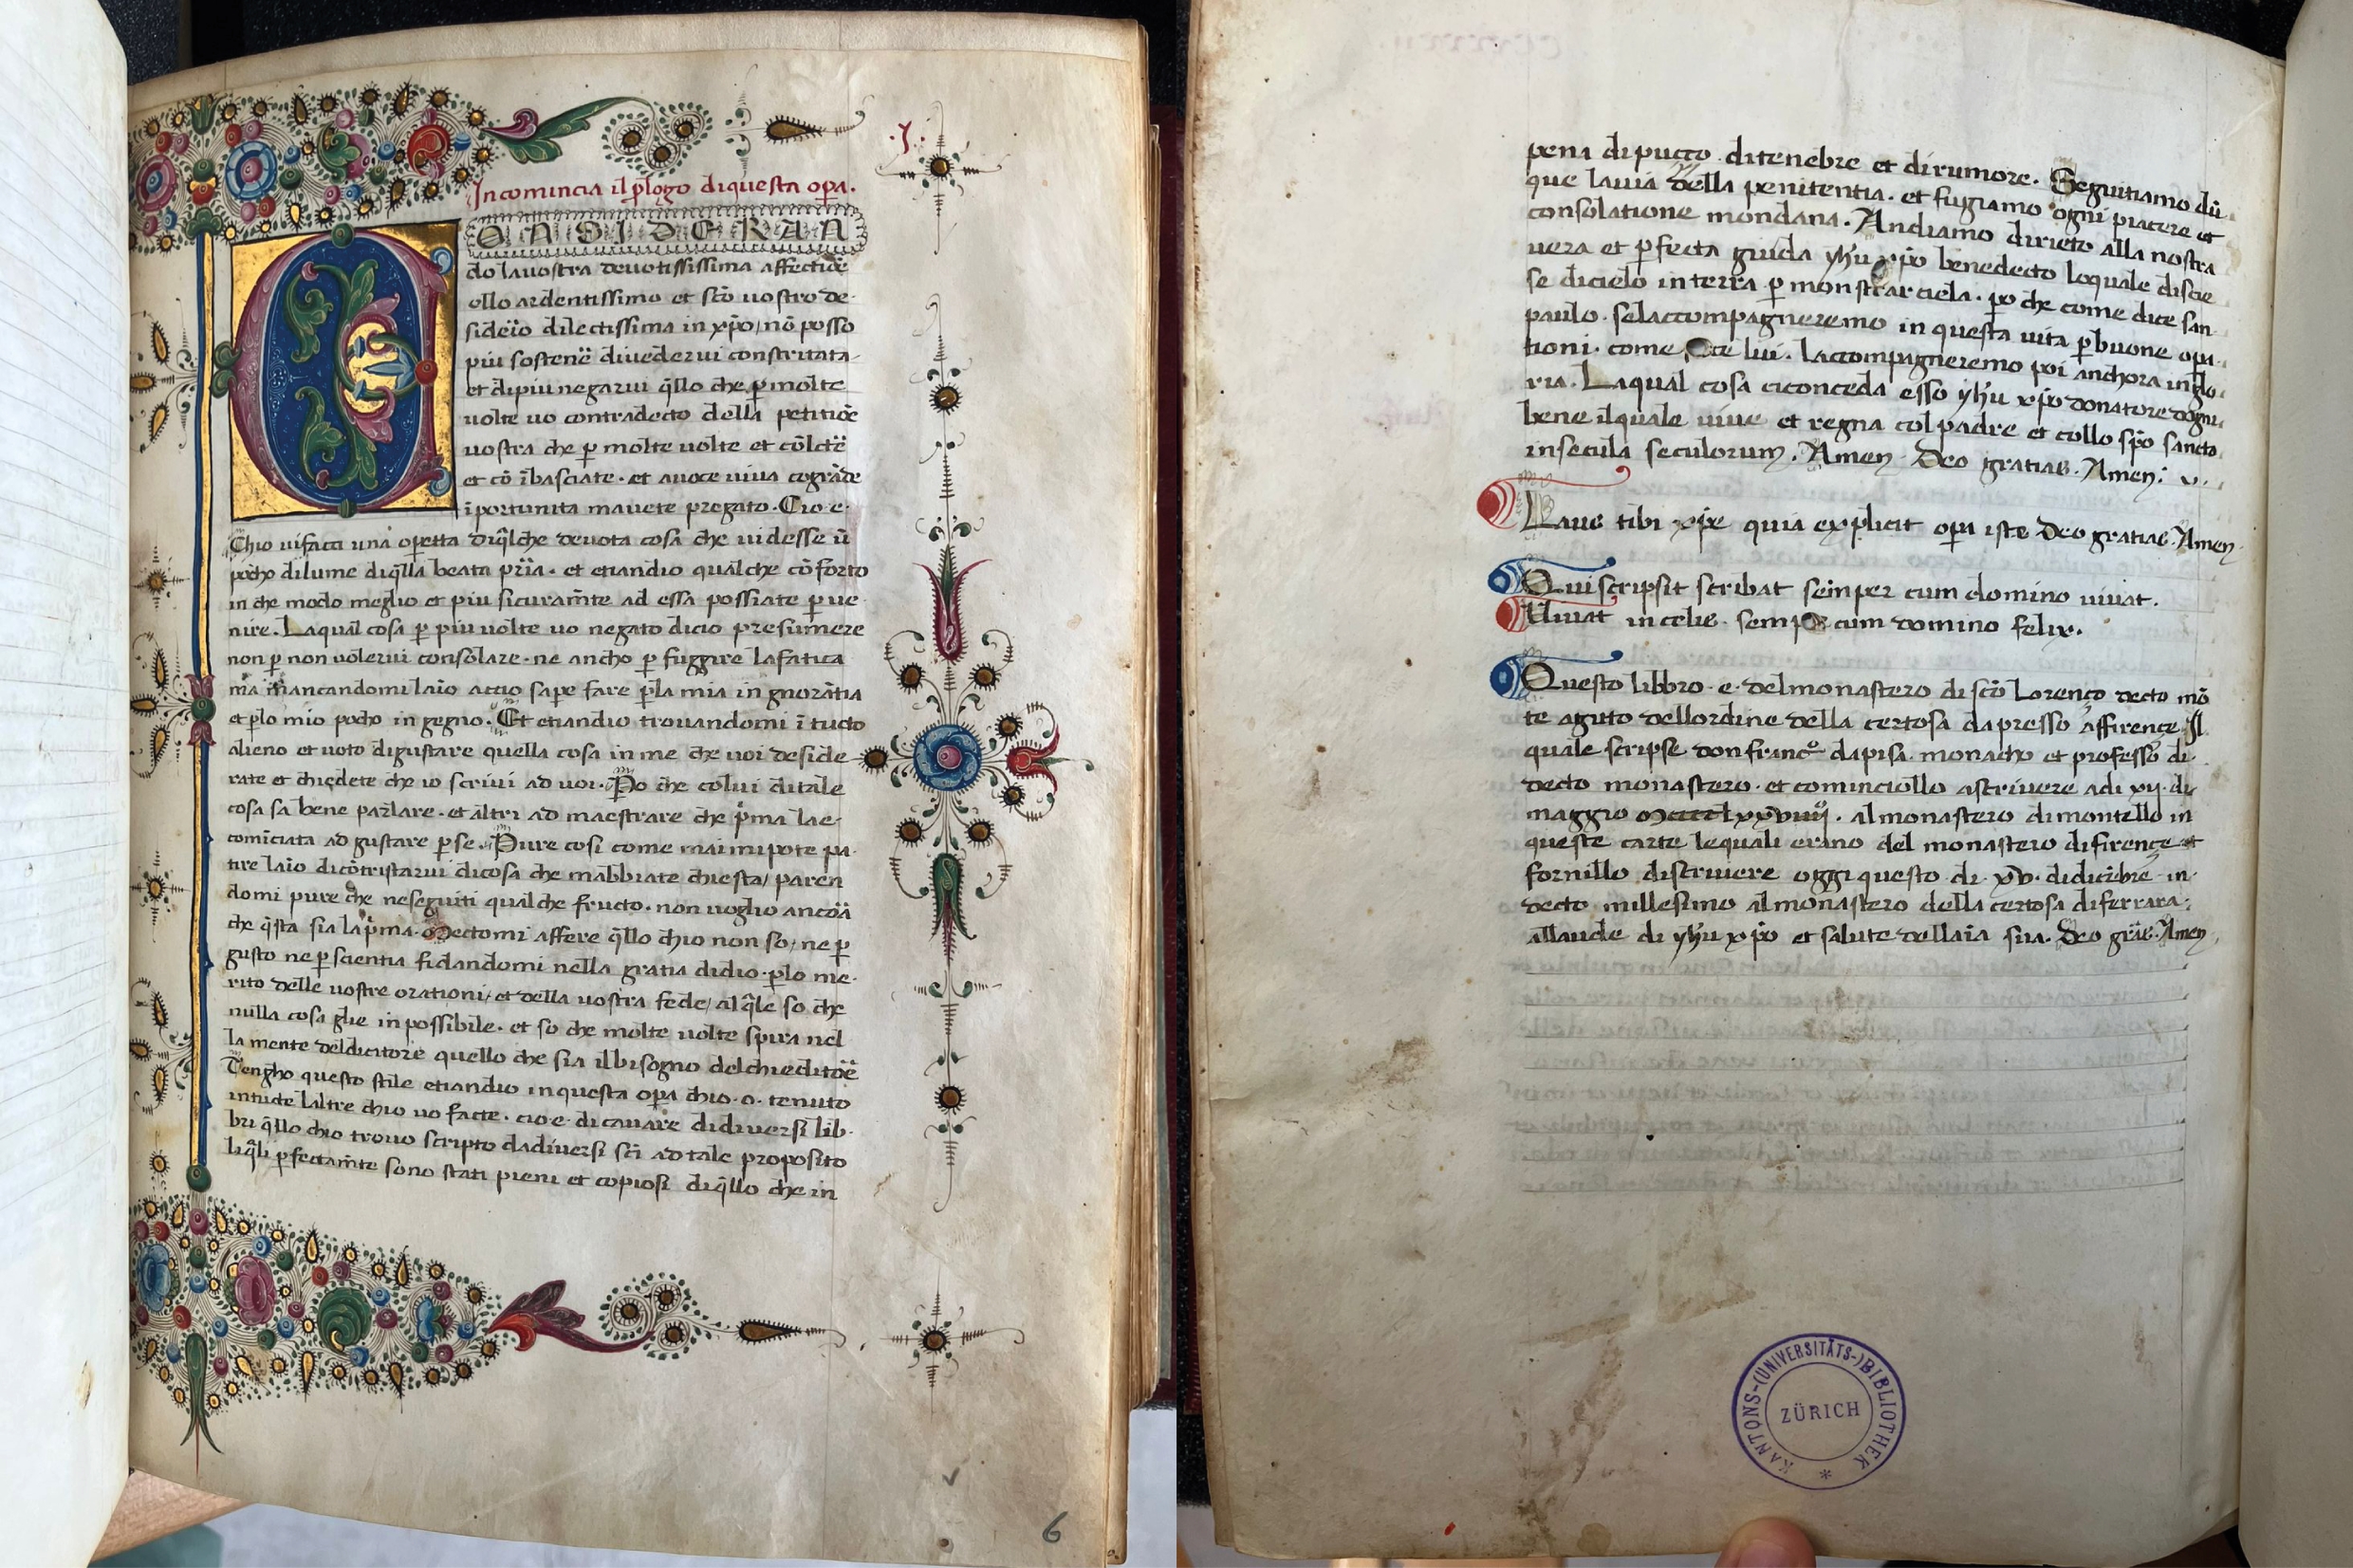 .j.
Incomincia il p̱logo diquesta op̱a.
ONSIDERAN
do lauostra deuotississima affectiõe
ollo ardentissimo et sc̃o uostro de-
sideïo dilectissima in xp̃o / nõ posso
piu sostenẽ diuederui constritata-
et dipiu negarui q̃llo che p̱ molte
uolte uo contradecto della petitiõe
uostra che p̱ molte uolte et cõlctẽ
et cõ ĩbasciate · et auoce uiua cogrãde
ĩportunita mauete pregato · Cio e ·
Chio uifacci una op̱etta diq̃lche deuota cosa che uidesse ũ
pocho dilume diq̃lla beata pr̃ia · et etiandio qualche cõforto
in che modo meglio et piu sicuram̃te ad essa possiate p̱ue
nire. Laqual cosa p̱ piu uolte uo negato dicio presumere
non p̱ non uolerui consolare · ne ancho p̱ fuggire lafatica
ma mancandomi laĩo accio sape fare p̱la mia in gnorãtia
et p̱lo mio pocho in gegno. Et etiandio trouandomi ĩ tucto
alieno et uoto digustare quella cosa in me che uoi deside
rate et chiedete che io scriui ad uoi. Po che colui ditale
cosa sa bene parlare · et altri ad maestrare che p̃ma lae
comĩciata ad gustare p̱ se. Pure cosi come mai mi pote pa
tire laĩo dicõtristarui dicosa che mabbiate chiesta / paren
domi pure che neseguiti qualche fructo · non uoglio ancõa
che q̃sta sia lap̃ma. Mectomi affere q̃llo chio non so / ne p̱
gusto ne p̱ scientia fidandomi nella gratia didio · p̱lo me-
rito delle uostre orationi / et della uostra fede / al q̃le so che
nulla cosa glie in possibile · et so che molte uolte spira nel
la mente deldicitore quello che sia ilbisogno delchieditõe
Tengho questo stile etiandio inquesta op̱a chio · o · tenuto
intucte laltre chio uo facte · cio e · di cauare didiuersi lib-
bri q̃llo chio trouo scripto dadiuersi sc̃i ad tale proposito
liq̃li p̱fectam̃te sono stati pieni et copiosi diq̃llo che in
6
pena dipucço ditenebre et dirumore. Seguitiamo dũ
que lauia della penitentia · et fugiamo ogni piacere et
consolatione mondana. Andiamo dirieto alla nostra
uera et p̱fecta guida yhu xp̃o benedecto loquale discie
se dicielo interra p̱ monstrarciela · po che come dice san
paulo · selaccompagneremo in questa uita p̱buone op̱a-
tioni · come lui. laccompagneremo poi anchora inglo-
ria. Laqual cosa ciconceda esso yhu xp̃o donatore dogni
bene ilquale uiue et regna col padre et collo sp̃o sancto
insecula seculorum. Amen Deo gratias. Amen:
Laus tibi xp̃e quia explicit op̱a iste Deo gratias. Amen
Qui scripsit scribat semper cum domino uiuat.
Uiuat in celis semp̱ cum domino felix.
Questo libbro · e · delmonastero di sc̃o Lorenço decto mõ
te aguto dellordine della certosa dapresso affirençe. Il
quale scripse don franc̊ dapisa · monacho et professo di
decto monastero · et cominciollo ascriuere adi xij · di
maggio Mcccclxxviiij · al monastero dimontello in
queste carte lequali erano del monastero difirençe et
fornillo discriuere oggi questo di · xv · didicẽbre in
decto millesimo almonastero della certosa diferrara ·
allaude di yhu xp̃o et salute dellaĩa sua. Deo gr̃as. Amen
KANTONS-(UNIVERSITÄTS-)BIBLIOTHEK
ZÜRICH
*